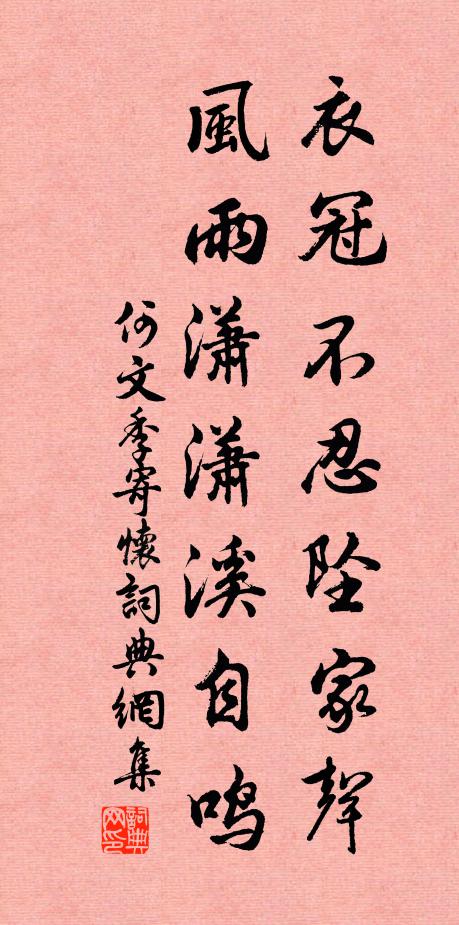 衣冠不忍坠家聲
風雨瀟瀟溪自鸣
何文季寄懷詞典網集
詞典网印